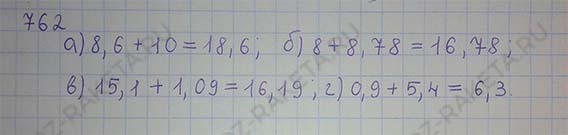 762
а) 8,6 + 10 = 18,6; б) 8 + 8,78 = 16,78;
в) 15,1 + 1,09 = 16,19; г) 0,9 + 5,4 = 6,3.